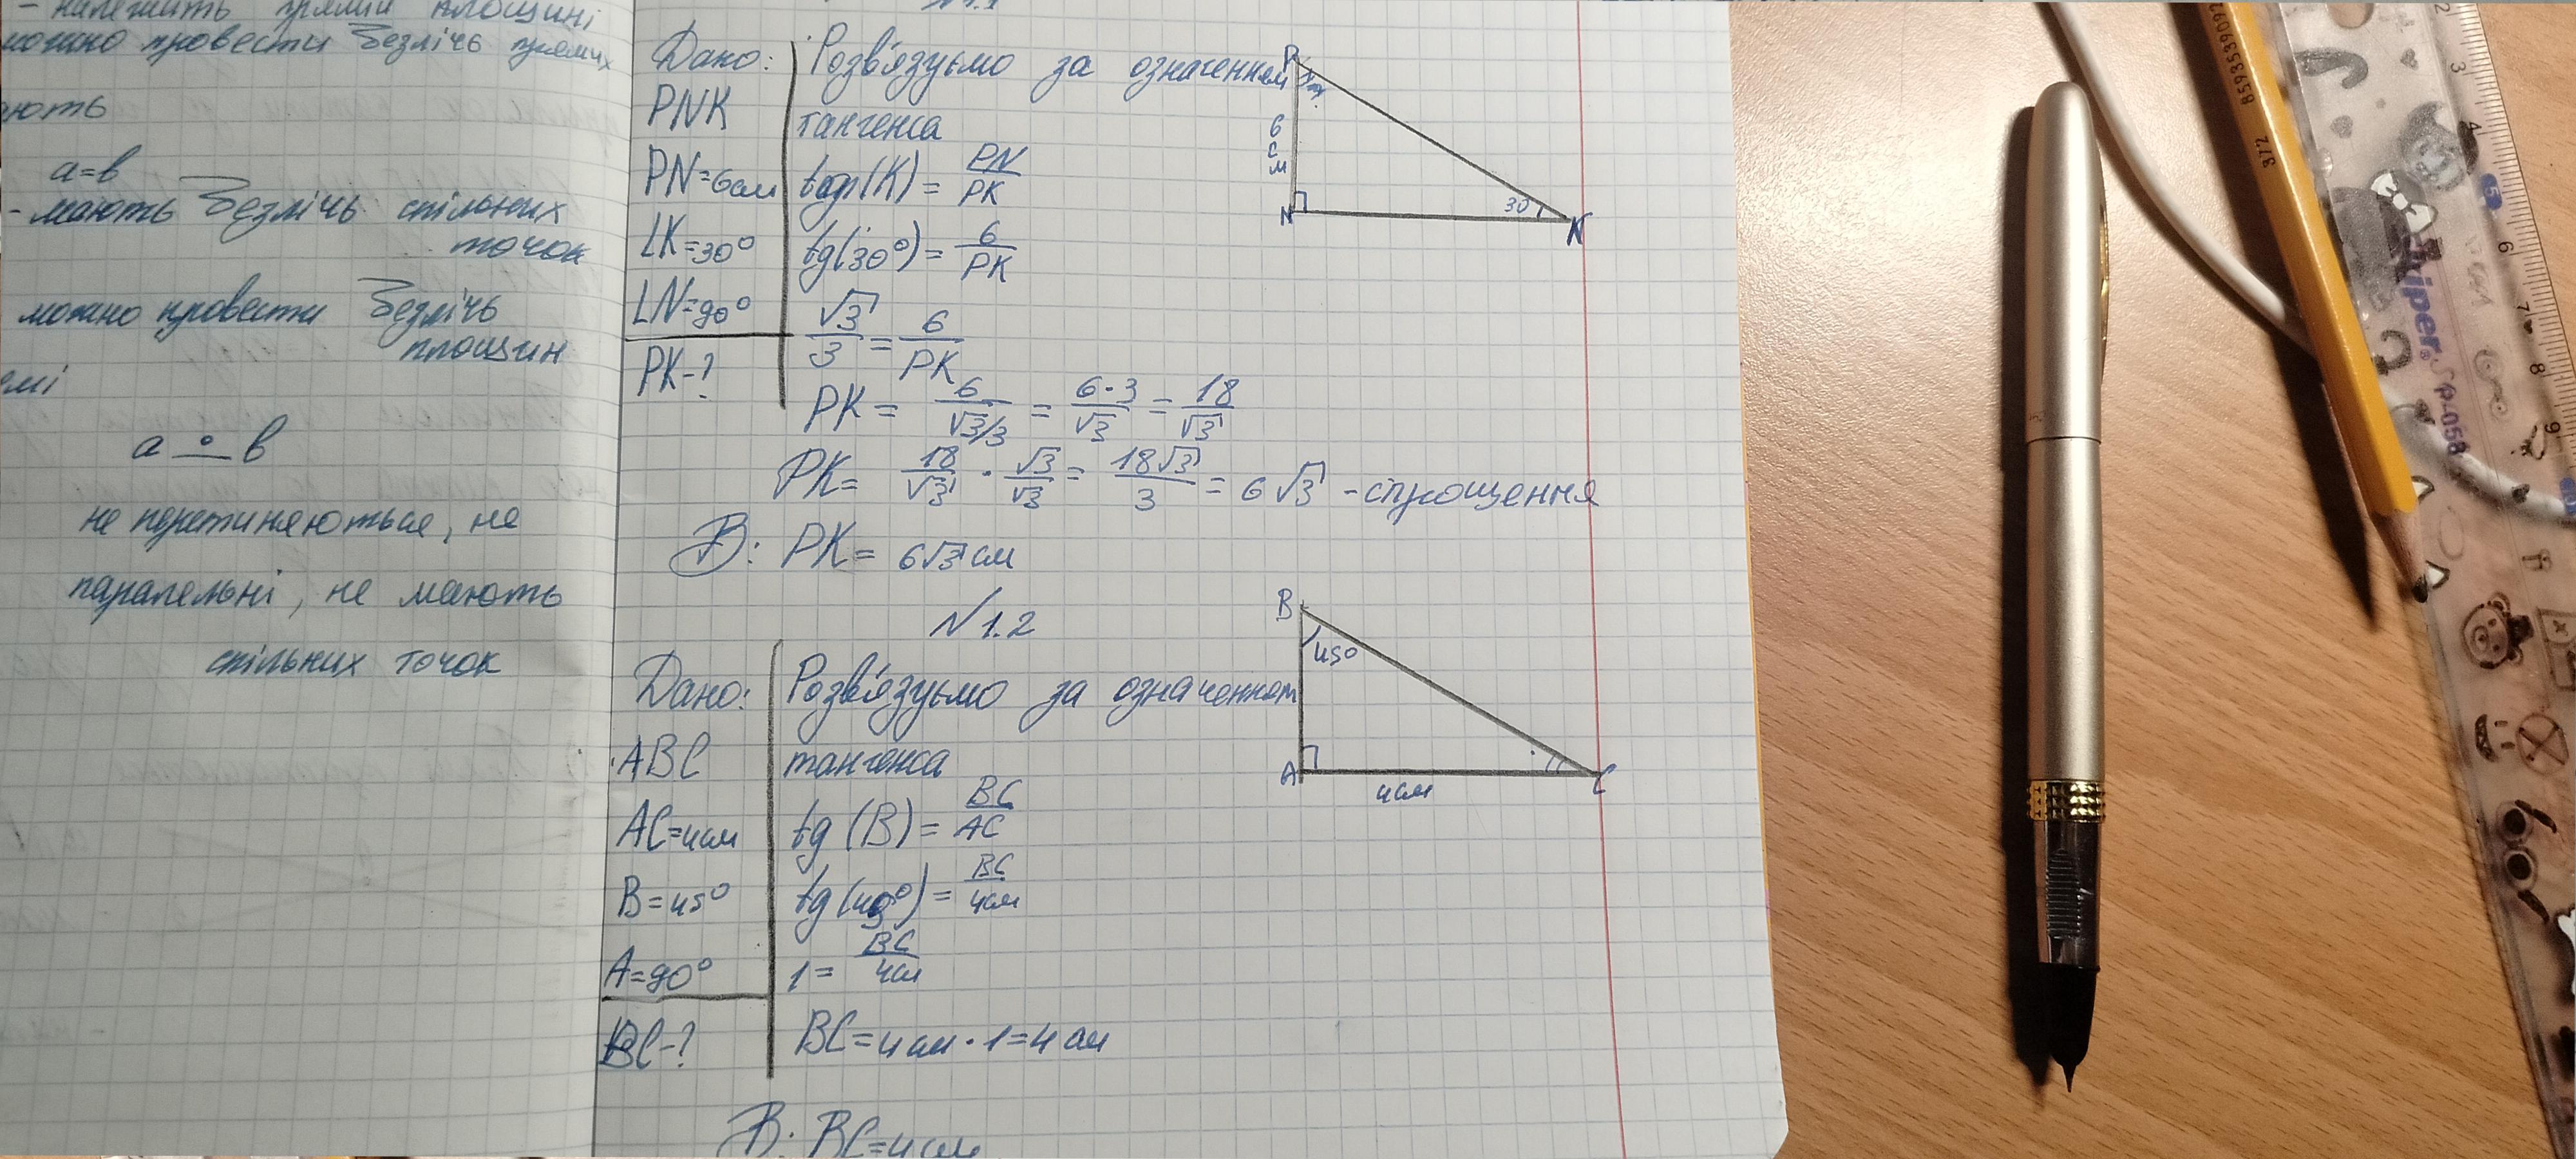 - належить прямій площині
можно провести безліч прямих
ають
a=b
- мають безліч спільних
точок
можно провести безліч
площин
емі
a b
не перетиняються, не
паралельні, не мають
спільних точок
Дано:
PNK
PN=6см
∠K=30°
∠N=90°
PK-?
Розв'язуємо за означенням
тангенса
(K) = PN/PK
tg(30°) = 6/PK
√3/3 = 6/PK
PK = 6/√3/3 = 6·3/√3 = 18/√3
PK= 18/√3 · √3/√3 = 18√3/3 = 6√3 - спрощення
В: PK= 6√3 см
P
6
с
м
N
30
K
№1.2
Дано:
ABC
AC=4см
B=45°
A=90°
BC-?
Розв'язуємо за означенням
тангенса
tg (B) = BC/AC
tg (45°) = BC/4см
1= BC/4см
BC=4см·1=4см
В: BC=4см
B
45°
A
4см
C
8593539092
372
kiper
SP-058
2
3
4
5
6
7
8
9